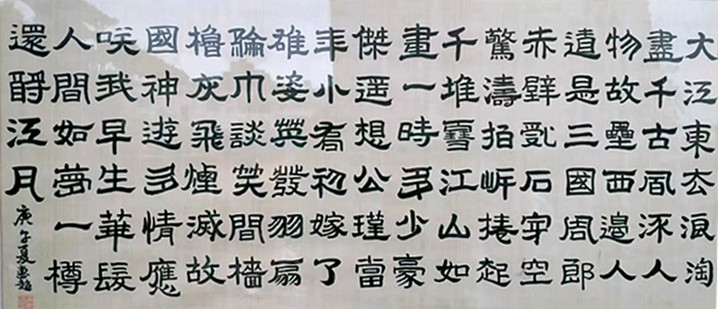 大江東去浪淘
盡千古風流人
物故壘西邊人
道是三國周郎
赤壁亂石穿空
驚濤拍岸捲起
千堆雪江山如
畫一時多少豪
傑遥想公瑾當
年小喬初嫁了
雄姿英發羽扇
綸巾談笑間檣
櫓灰飛煙滅故
國神遊多情應
咲我早生華髮
人間如夢一樽
還酹江月
庚午夏